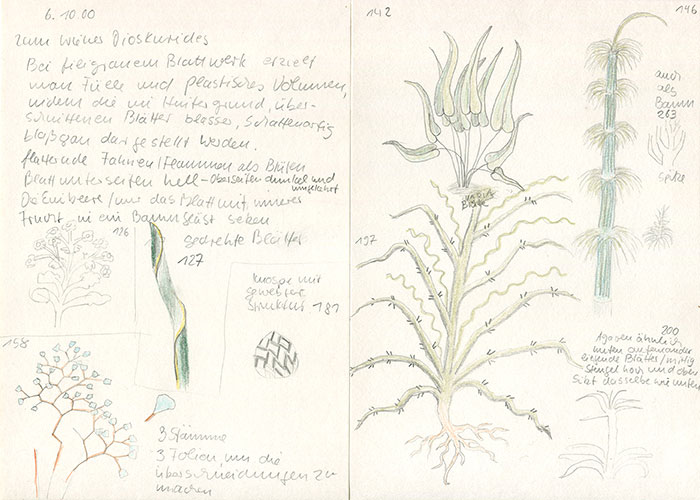 6. 10.00
zum Wiener Dioskurides
Bei filigranem Blattwerk erzielt
man Fülle und plastisches Volumen,
indem die im Hintergrund, über-
schnittenen Blätter blasser, schattenartig
blaßgrau dargestellt werden.
flatternde Fahnen/Flammen als Blüten
Blattunterseiten hell - Oberseiten dunkel und
umgekehrt
Die Einbeere / nur das Blatt mit innerer
Frucht in ein Baumgeäst setzen
gedrehte Blätter
126
127
Knospe mit
gewebter
Struktur 181
158
3 Stämme
3 Folien, um die
überschneidungen zu
machen
142
197
Blüte
146
auch
als
Baum
263
spitze
200
Agaven ähnlich
unten aufeinander
liegende Blätter / mittig
Stengel hoch und oben
sitzt dasselbe wie unten